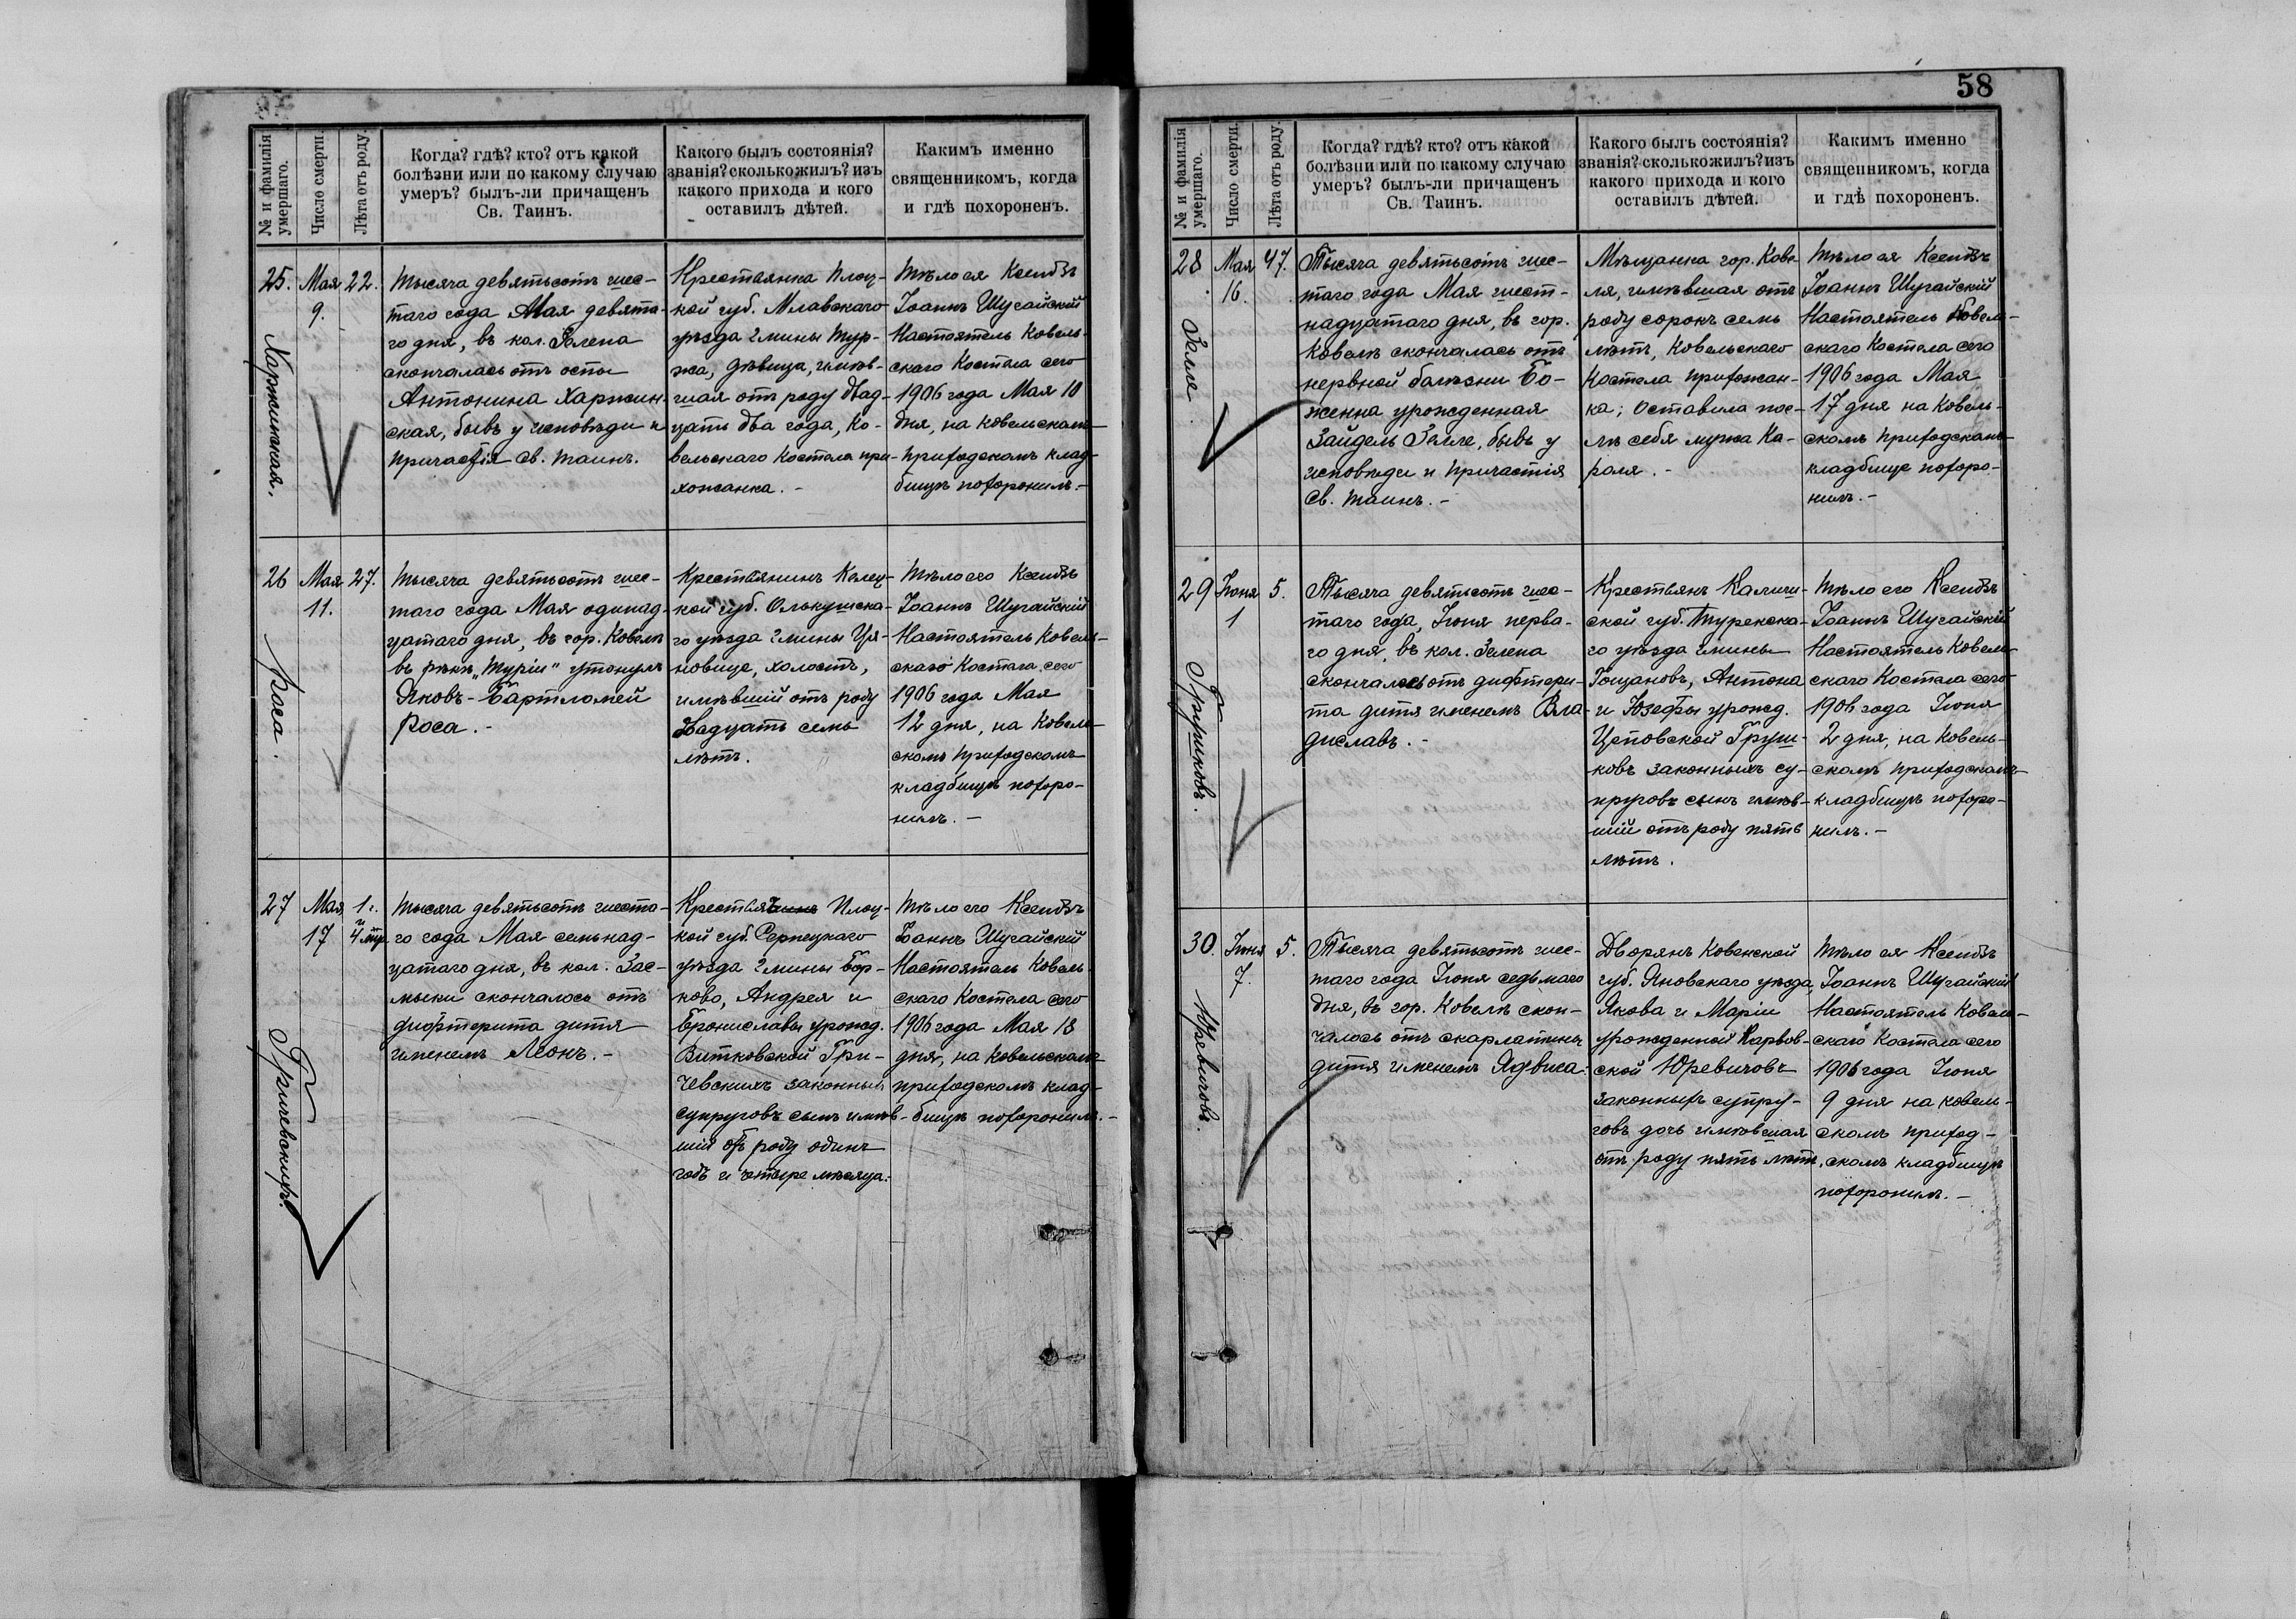 58
№ и фамилія умершаго.
Число смерти.
Лѣта отъ роду.
Когда? гдѣ? кто? отъ какой
болѣзни или по какому случаю
умеръ? былъ-ли причащенъ
Св. Таинъ.
Какого былъ состоянія?
званія? сколько жилъ? изъ
какого прихода и кого
оставилъ дѣтей.
Какимъ именно
священникомъ, когда
и гдѣ похороненъ.
25.
Харжинская.
Мая
9.
22.
Тысяча девятьсотъ шес-
таго года Мая девята-
го дня, въ кол. Зелена
скончалась отъ оспы
Антонина Харжин-
ская, бывъ у исповѣди и
причастія Св. Таинъ.
Крестьянка Плоц-
кой губ. Млавскаго
уѣзда гмины Тур-
жа, дѣвица, имѣв-
шая отъ роду двад-
цать два года, Ко-
вельскаго Костела при-
хожанка. -
Тѣло ея Ксендзъ
Іоаннъ Шугайскій
Настоятель Ковель-
скаго Костела сего
1906 года Мая 10
дня, на Ковельскомъ
приходскомъ клад-
бищѣ похоронилъ.-
26
Роса.
Мая
11.
27.
Тысяча девятьсотъ шес-
таго года Мая одинад-
цатаго дня, въ гор. Ковелѣ
въ рѣкѣ „Туріи" утонулъ
Яковъ-Бартломей
Роса. -
Крестьянинъ Келец-
кой губ. Олькушска-
го уѣзда гмины Ця-
новице, холостъ,
имѣвшій отъ роду
двадцать семь
лѣтъ.
Тѣло его Ксендзъ
Іоаннъ Шугайскій
Настоятель Ковель-
скаго Костела сего
1906 года Мая
12 дня, на Ковель-
скомъ приходскомъ
кладбищѣ похоро-
нилъ. -
27
Гричевскихъ.
Мая
17
1 г.
и
4 мѣс.
Тысяча девятьсотъ шеста-
го года Мая семьнад-
цатаго дня, въ кол. Зас-
мыки скончалось отъ
дифтерита дитя
именемъ Леонъ. -
Крестьянъ Плоц-
кой губ. Серпецкаго
уѣзда гмины Бор-
ково, Андрея и
Брониславы урожд.
Витковской Гри-
чевскихъ законныхъ
супруговъ сынъ имѣв-
шій отъ роду одинъ
годъ и четыре мѣсяца.
Тѣло его Ксендзъ
Іоаннъ Шугайскій
Настоятель Ковель-
скаго Костела сего
1906 года Мая 18
дня, на Ковельскомъ
приходскомъ клад-
бищѣ похоронилъ. -
№ и фамилія умершаго.
Число смерти.
Лѣта отъ роду.
Когда? гдѣ? кто? отъ какой
болѣзни или по какому случаю
умеръ? былъ-ли причащенъ
Св. Таинъ.
Какого былъ состоянія?
званія? сколько жилъ? изъ
какого прихода и кого
оставилъ дѣтей.
Какимъ именно
священникомъ, когда
и гдѣ похороненъ.
28
Зелле.
Мая
16.
47.
Тысяча девятьсотъ шес-
таго года Мая шест-
надцатаго дня, въ гор.
Ковелѣ скончалась отъ
нервной болѣзни Бо-
женна урожденная
Зайдель Зелле, бывъ у
исповѣди и причастія
Св. Таинъ. -
Мѣщанка гор. Кове-
ля, имѣвшая отъ
роду сорокъ семь
лѣтъ, Ковельскаго
Костела прихожан-
ка; Оставила пос-
лѣ себя мужа Ка-
роля. -
Тѣло ея Ксендзъ
Іоаннъ Шугайскій
Настоятель Ковель-
скаго Костела сего
1906 года Мая
17 дня на Ковель-
скомъ приходскомъ
кладбище похоро-
нилъ. -
29
Грушковъ.
Іюня
1
5.
Тысяча девятьсотъ шес-
таго года, Іюня перва-
го дня, въ кол. Зелена
скончалось отъ дифтери-
та дитя именемъ Вла-
диславъ. -
Крестьянъ Калиш-
ской губ. Турекска-
го уѣзда гмины
Гощановъ, Антона
и Юзефы урожд.
Цеповской Груш-
ковъ законныхъ су-
пруговъ сынъ имѣв-
шій отъ роду пять
лѣтъ.
Тѣло его Ксендзъ
Іоаннъ Шугайскій
Настоятель Ковель-
скаго Костела сего
1906 года Іюня
2 дня, на Ковель-
скомъ приходскомъ
кладбищѣ похоро-
нилъ. -
30.
Юревичовъ.
Іюня
7.
5.
Тысяча девятьсотъ шес-
таго года Іюня седьмаго
дня, въ гор. Ковелѣ скон-
чалось отъ скарлатины
дитя именемъ Ядвига.
Дворянъ Ковенской
губ. Яновскаго уѣзда,
Якова и Маріи
урожденной Карвов-
ской Юревичовъ
законныхъ супру-
говъ дочь имѣвшая
отъ роду пять лѣтъ.
Тѣло ея Ксендзъ
Іоаннъ Шугайскій
Настоятель Ковель-
скаго Костела сего
1906 года Іюня
9 дня на Ковель-
скомъ приход-
скомъ кладбищѣ
похоронилъ. -